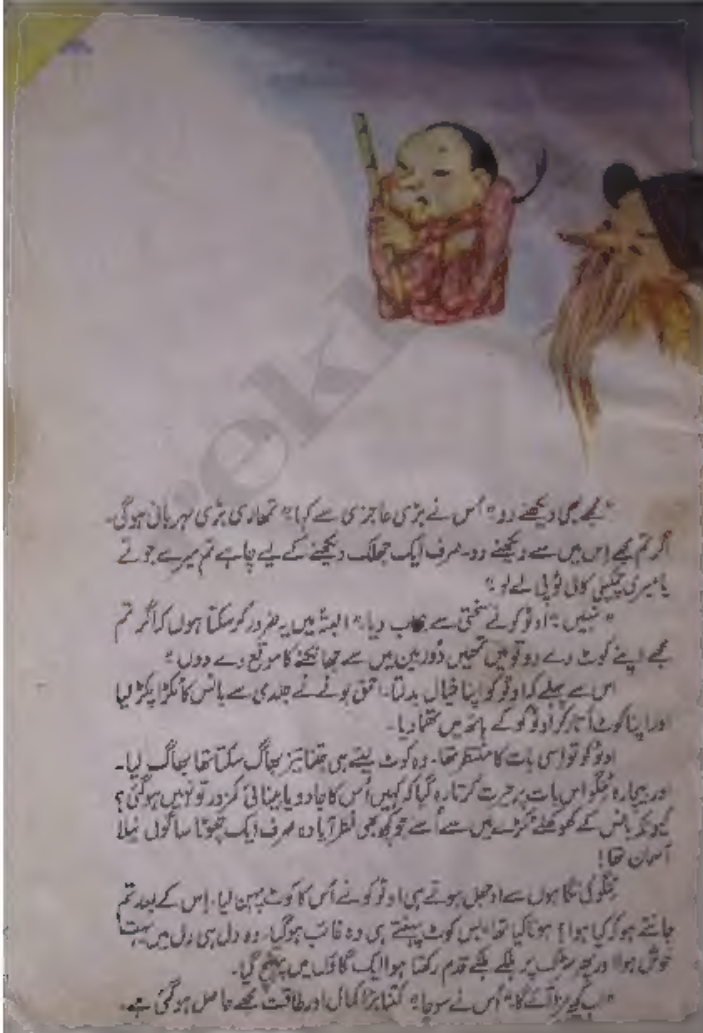 "مجھے بھی دیکھنے دو" اُس نے بڑی عاجزی سے کہا "تمہاری بڑی مہربانی ہوگی۔
اگر تم مجھے اِس میں سے دیکھنے دو۔ صرف ایک جھلک دیکھنے کے لیے چاہے تم میرے جوتے
یا میری چمکیلی کالی ٹوپی لے لو"
"نہیں" اوٹوکو نے سختی سے جواب دیا۔ "البتہ میں یہ ضرور کر سکتا ہوں کہ اگر تم
مجھے اپنے کوٹ دے دو تو میں تمہیں دُوربین میں سے جھانکنے کا موقع دے دوں"
اس سے پہلے کہ اوٹوکو اپنا خیال بدلتا۔ احمق بونے نے جلدی سے بانس کا ٹکڑا پکڑ لیا
اور اپنا کوٹ اُتار کر اوٹوکو کے ہاتھ میں تھما دیا۔
اوٹوکو تو اِسی بات کا منتظر تھا۔ وہ کوٹ لیتے ہی جتنا تیز بھاگ سکتا تھا بھاگ لیا۔
اور بیچارہ ٹینگو اس بات پر حیرت کرتا رہ گیا کہ کہیں اُس کا جادو یا بینائی کمزور تو نہیں ہوگئی؟
کیونکہ بانس کے کھوکھلے ٹکڑے میں سے اُسے جو کچھ بھی نظر آیا وہ صرف ایک چھوٹا سا گول نیلا
آسمان تھا!
ٹینگو کی نگاہوں سے اوجھل ہوتے ہی اوٹوکو نے اُس کا کوٹ پہن لیا۔ اِس کے بعد تم
جانتے ہو کہ کیا ہوا؟ ہونا کیا تھا۔ بس کوٹ پہنتے ہی وہ غائب ہوگیا۔ وہ دل ہی دل میں بہت
خوش ہوا اور پھر سڑک پر ہلکے ہلکے قدم رکھتا ہوا ایک گاؤں میں پہنچ گیا۔
"اب کچھ مزہ آئے گا" اُس نے سوچا "کتنا بڑا کمال اور طاقت مجھے حاصل ہوگئی ہے۔